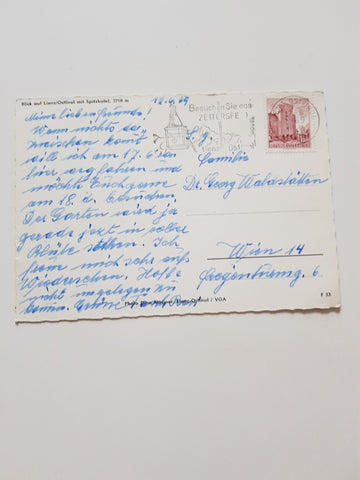 Blick auf Lienz/Osttirol mit Spitzkofel, 2718 m
12.6.69
Meine lieben Freunde!
Wenn nichts da-
zwischen kommt
will ich am 17. 6. von
hier wegfahren und
möchte Euch gerne
am 18. d. besuchen
Der Garten wird ja
gerade jetzt in voller
Blüte stehen. Ich
freue mich sehr aufs
Wiedersehen. Hoffe
nicht ungelegen zu
kommen. Grüße
Besuchen Sie das
ZETTERSFELD
Lienz Ostt
Familie
Dr. Georg Waldstätten
Wien 14
6.
Osttirol / VGA
F 53